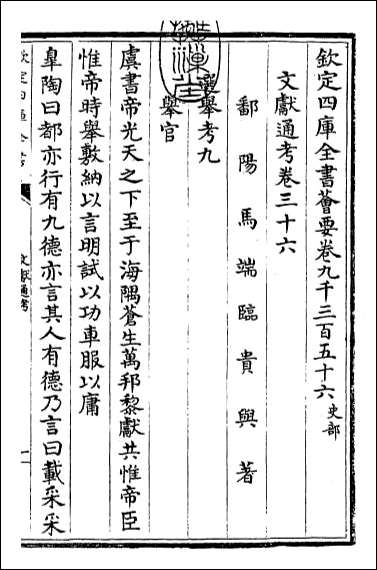 欽定四庫全書薈要卷九千三百五十六 史部
文獻通考卷三十六
鄱陽馬端臨貴與著
選舉考九
舉官
虞書帝光天之下至于海隅蒼生萬邦黎獻共惟帝臣
惟帝時舉敷納以言明試以功車服以庸
臯陶曰都亦行有九德亦言其人有德乃言曰載采采
文獻通考